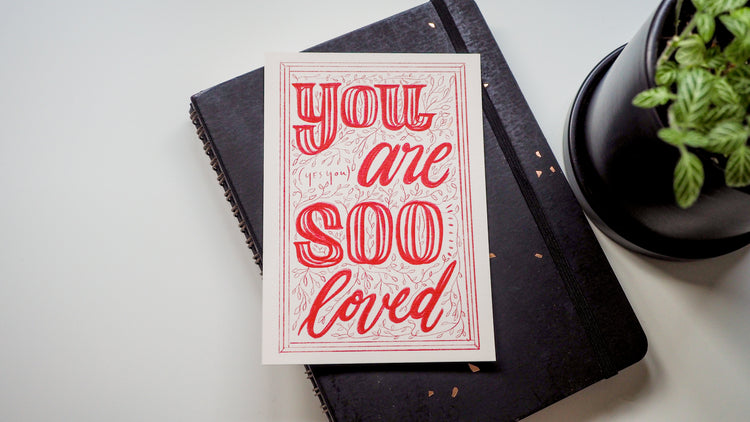 you
(yes you) are
SOO
loved